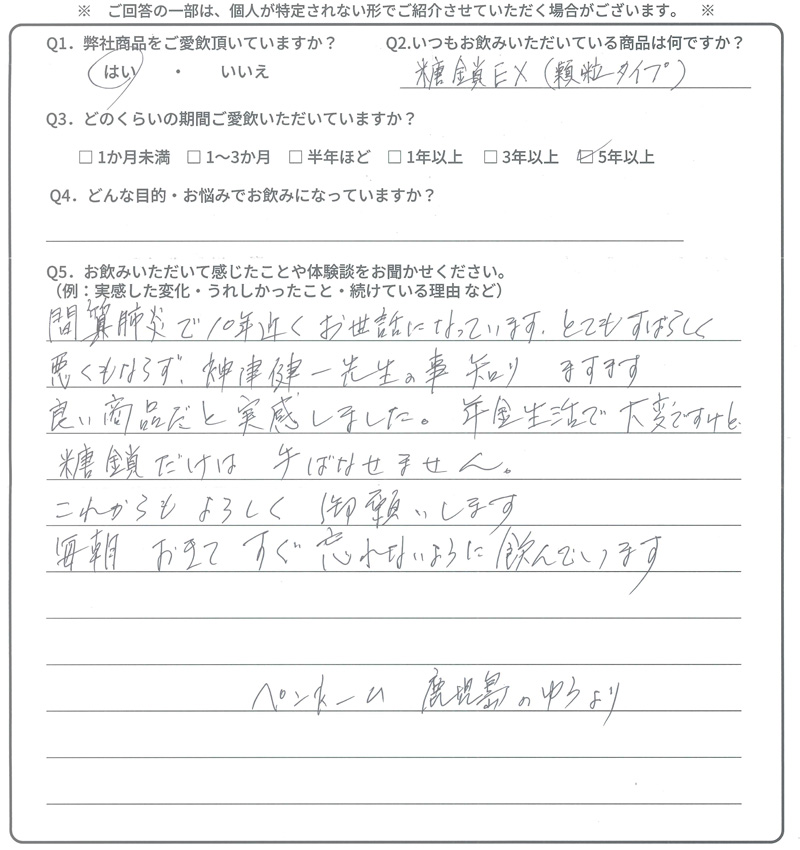 ※　ご回答の一部は、個人が特定されない形でご紹介させていただく場合がございます。　※
Q1．弊社商品をご愛飲頂いていますか？　Q2.いつもお飲みいただいている商品は何ですか？
はい　・　いいえ　糖鎖EX（顆粒タイプ）
Q3．どのくらいの期間ご愛飲いただいていますか？
□ 1か月未満　□ 1〜3か月　□ 半年ほど　□ 1年以上　□ 3年以上　☑ 5年以上
Q4．どんな目的・お悩みでお飲みになっていますか？
Q5．お飲みいただいて感じたことや体験談をお聞かせください。
（例：実感した変化・うれしかったこと・続けている理由 など）
間質肺炎で10年近くお世話になっています、とてもすばらしく
悪くもならず、神津健一先生の事知り　ますます
良い商品だと実感しました。年金生活で大変ですけど
糖鎖だけは　手ばなせません。
これからも　よろしく　御願いします
毎朝　おきて　すぐ忘れないように飲んでいます
ペンネーム　鹿児島のゆうより